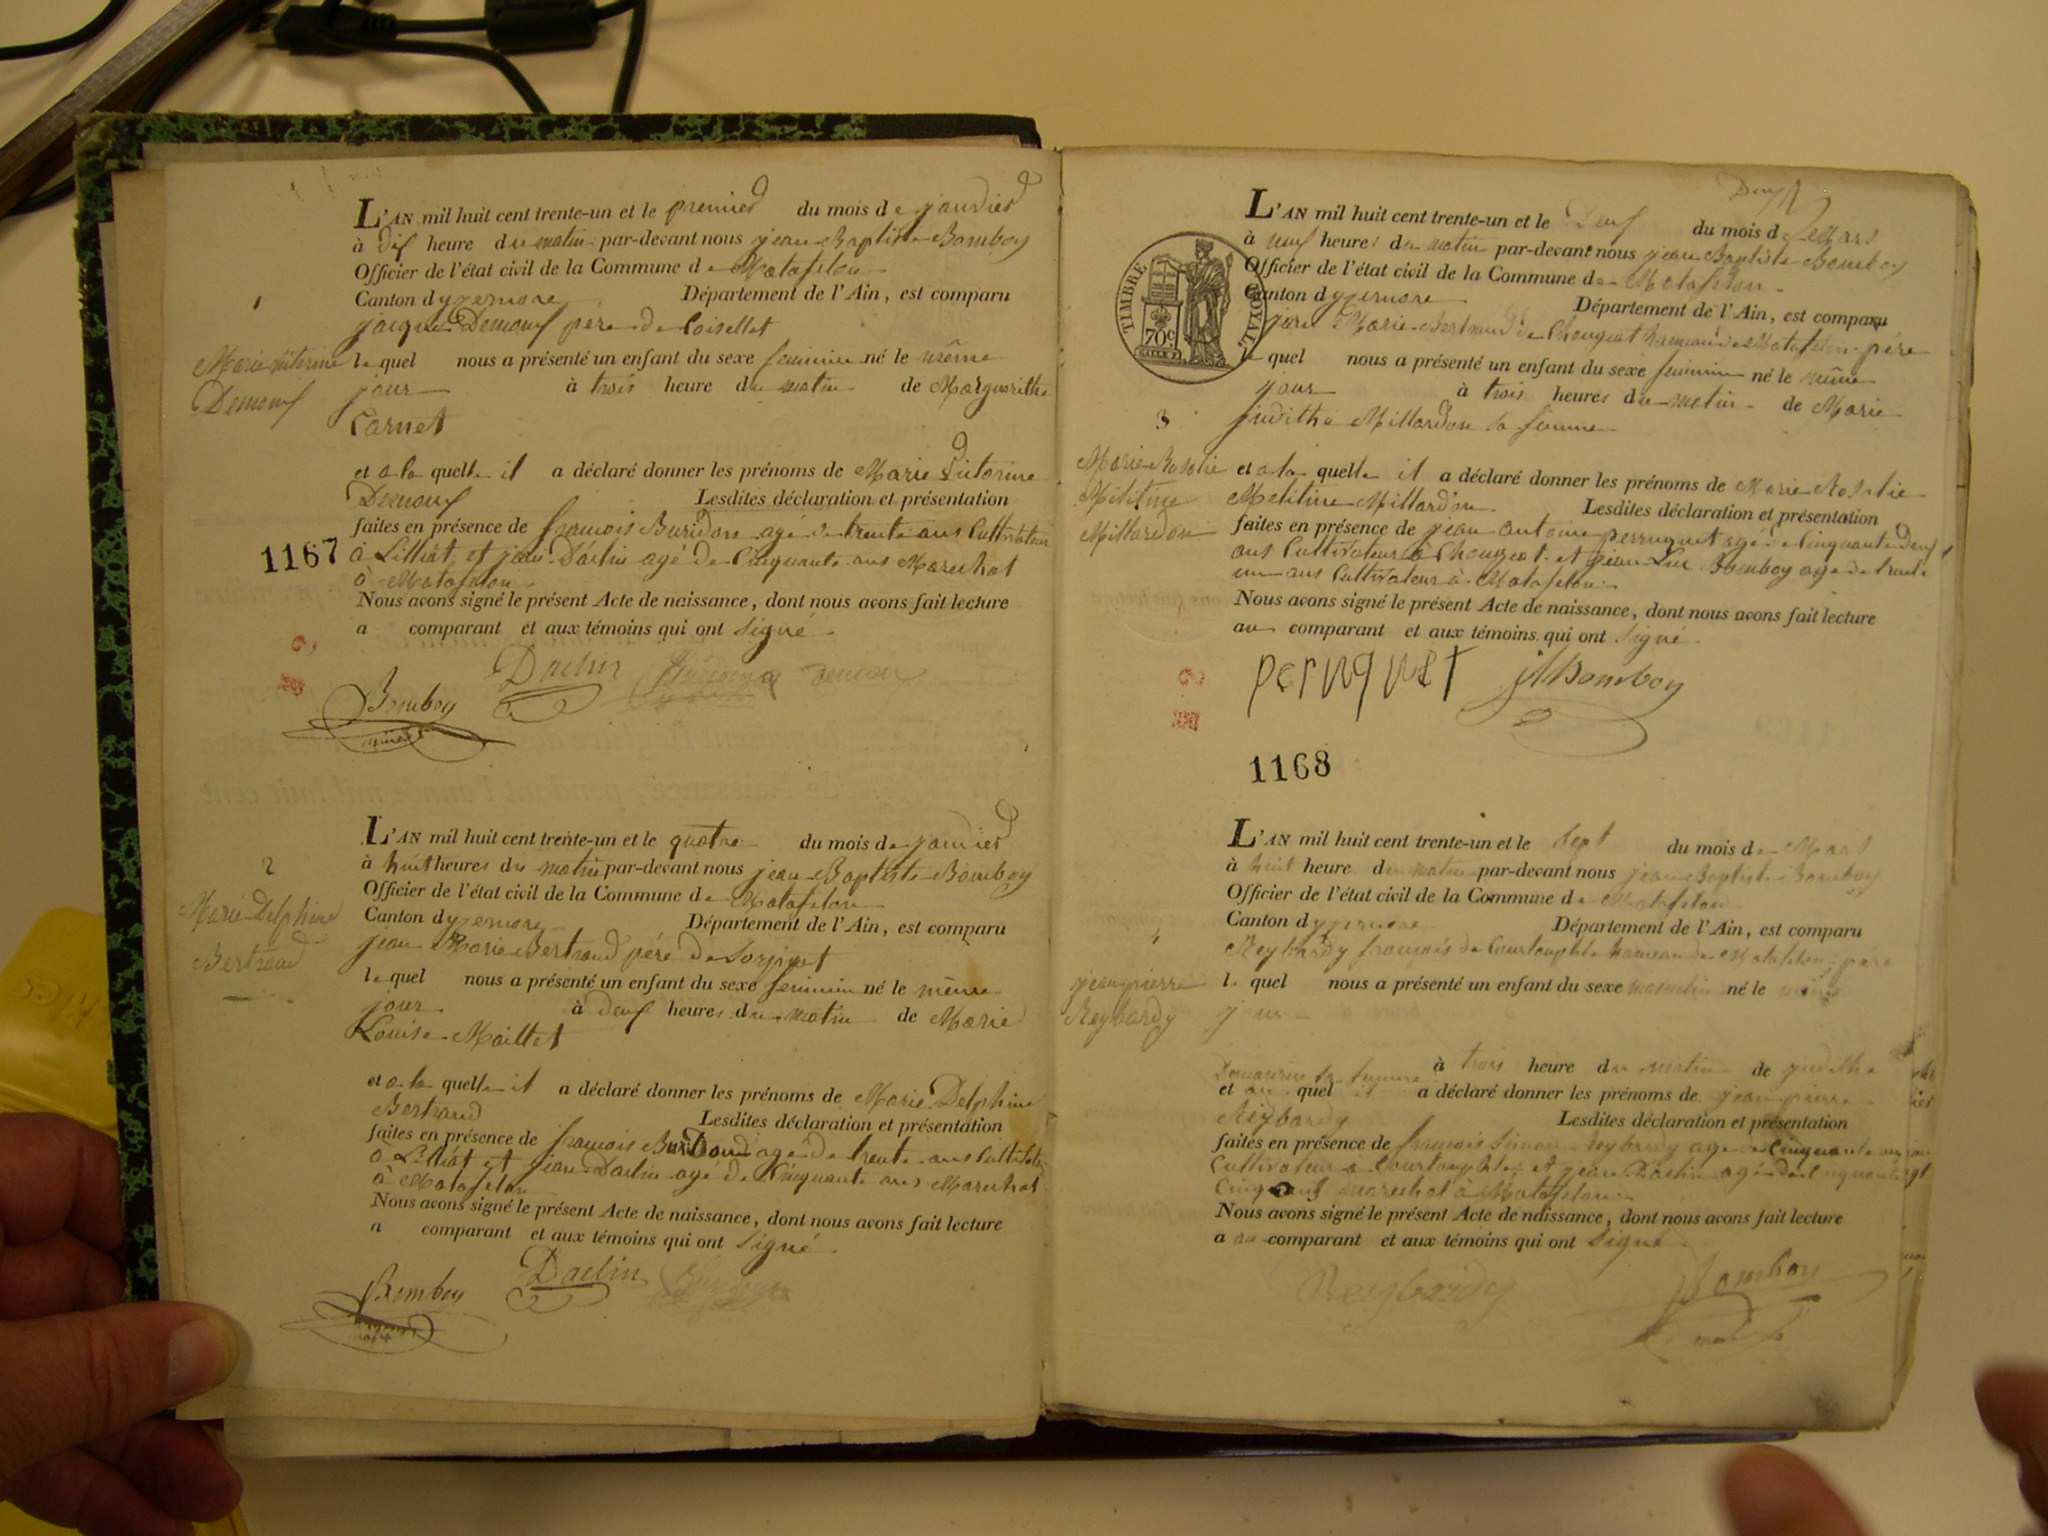 L'AN mil huit cent trente-un et le premier du mois de janvier
à dix heure du matin par-devant nous jean Baptiste Bomboy
Officier de l'état civil de la Commune de Matafelon
Canton d'yzernore Département de l'Ain, est comparu
jacque père de Coisellet
1
le quel nous a présenté un enfant du sexe feminin né le même
Marie
jour à trois heure du matin de Marguerithe
Carnet
et a la quelle il a déclaré donner les prénoms de Marie
Lesdites déclaration et présentation
faites en présence de françois Buridon agé de trente ans Cultivateur
1167
à Lilliat et jean Darlin agé de Cinquante ans Marechal
à Matafelon
Nous avons signé le présent Acte de naissance, dont nous avons fait lecture
a comparant et aux témoins qui ont signé
Bomboy Darlin
2
L'AN mil huit cent trente-un et le quatre du mois de janvier
à huit heures du matin par-devant nous jean Baptiste Bomboy
Officier de l'état civil de la Commune de Matafelon
Canton d'yzernore Département de l'Ain, est comparu
Marie Delphine
Bertrand
jean Marie Bertrand père de
le quel nous a présenté un enfant du sexe feminin né le même
jour à deux heures du matin de Marie
Louise Maillet
et a la quelle il a déclaré donner les prénoms de Marie Delphine
Bertrand Lesdites déclaration et présentation
faites en présence de françois Buridon agé de trente ans
à Lilliat et jean Darlin agé de Cinquante ans Marechal
à Matafelon
Nous avons signé le présent Acte de naissance, dont nous avons fait lecture
a comparant et aux témoins qui ont signé
Bomboy Darlin
L'AN mil huit cent trente-un et le Deux du mois de Mars
à neuf heures du matin par-devant nous jean Baptiste Bomboy
Officier de l'état civil de la Commune de Matafelon
Canton d'yzernore Département de l'Ain, est comparu
TIMBRE ROYAL
70c
Marie Bertrand de Chougeat hameau de Matafelon père
le quel nous a présenté un enfant du sexe feminin né le même
jour à trois heures du matin de Marie
3
judithe Millardon sa femme
Marie Rosalie
Melitine
Millardon
et a la quelle il a déclaré donner les prénoms de Marie Rosalie
Melitine Millardon Lesdites déclaration et présentation
faites en présence de jean antoine perruquet agé de Cinquante Deux
ans Cultivateur à Chougeat et jean Luc Bomboy age de trente
un ans Cultivateur à Matafelon
Nous avons signé le présent Acte de naissance, dont nous avons fait lecture
au comparant et aux témoins qui ont signé
peruquet Bomboy
1168
L'AN mil huit cent trente-un et le Sept du mois de Mars
à huit heure du matin par-devant nous jean Baptiste Bomboy
Officier de l'état civil de la Commune de Matafelon
Canton d'yzernore Département de l'Ain, est comparu
Reybardy françois de Courtouphle hameau de Matafelon père
jean pierre
Reybardy
le quel nous a présenté un enfant du sexe masculin né le même
jour
à trois heure du matin de judithe
sa femme
et au quel il a déclaré donner les prénoms de jean pierre
Reybardy Lesdites déclaration et présentation
faites en présence de françois Simon Reybardy age de Cinquante
Cultivateur a Courtouphle et jean Darlin agé de
Marechal à Matafelon
Nous avons signé le présent Acte de naissance, dont nous avons fait lecture
a au comparant et aux témoins qui ont signé
Reybardy Bomboy